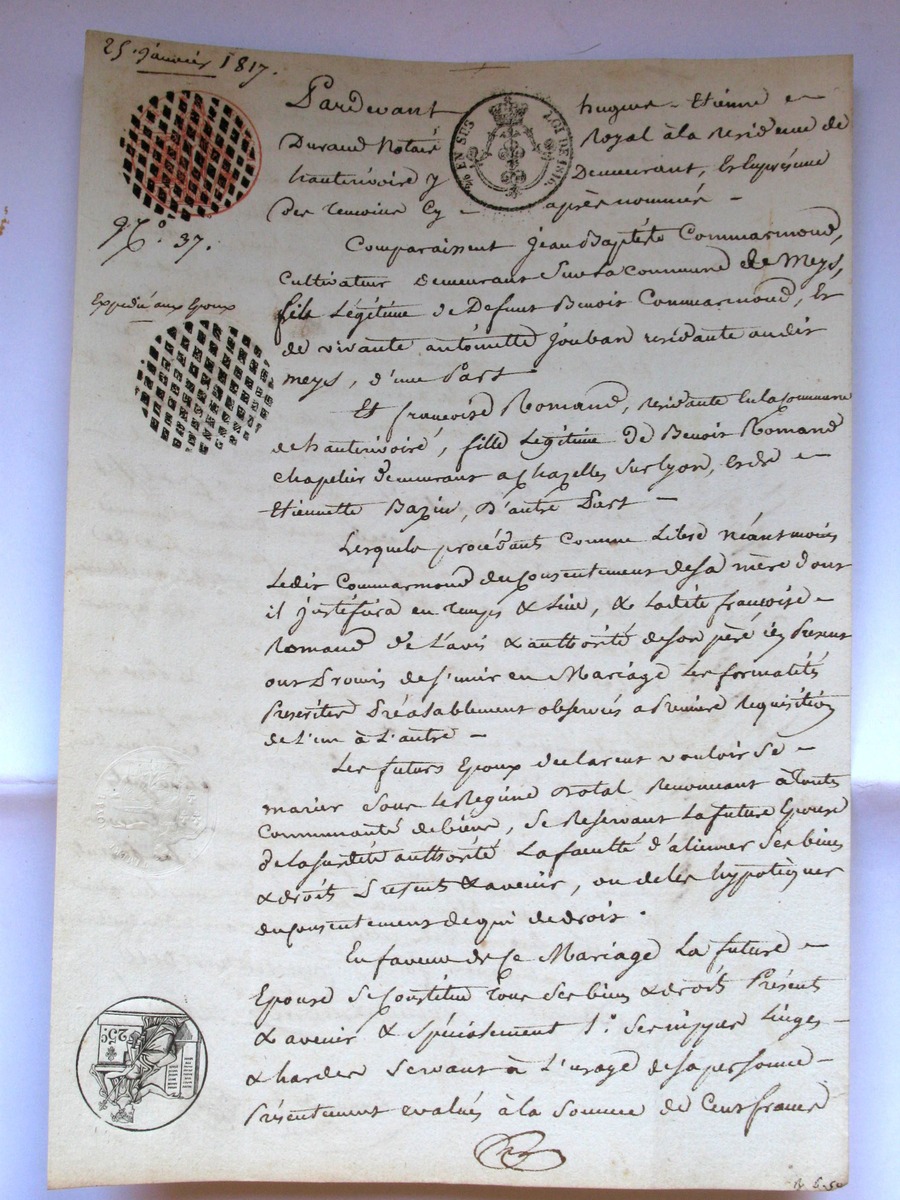 25. janvier 1817.
Pardevant hugues - Etienne -
EN SUS
LOI DE 1816.
Durand Notaire Royal à la Residence de
hauterivoire y Demeurant, & en presence
Des temoins Cy - après nommés -
N.° 37.
Comparaissent Jean Baptiste Commarmond,
Expedié aux Epoux
Cultivateur demeurant sur la Commune de Meys,
fils Légitime de Defunt Benoit Commarmond, Et
de vivante antoinette Jouban residante audit
meys, d'une Part -
Et françoise Romand, residante en la commune
de hauterivoire, fille Légitime de Benoit Romand
chapelier demeurant a Chazelles sur Lyon, et de -
Etiennette Bazin, d'autre Part -
Lesquels procédants comme Libres néantmoins
Ledit Commarmond du consentement de sa mère dont
il justifira en temps & lieu, & Ladite françoise -
Romand de l'avis & authorité de son père icy Present
ont Promis de s'unir en Mariage Les formalités
Prescrites Préalablement observés a Premiere Requisition
de L'un à L'autre -
Les futurs Epoux declarent vouloir se -
marier sous le Regime Dotal Renonçant à toute
Communauté de biens, se Reservant La future Epouse
de la susdite authorité La faculté d'aliener ses biens
& droits Presents & avenir, ou de les hypotéquer
du consentement de qui de droit.
En faveur de Ce Mariage La future -
Epouse se Constitue tous ses biens & droits Présents
& avenir & spécialement 1.° ses nippes Linges -
25.c
& hardes servant à L'usage de sa personne -
Présentement evalués à la somme de Cent francs